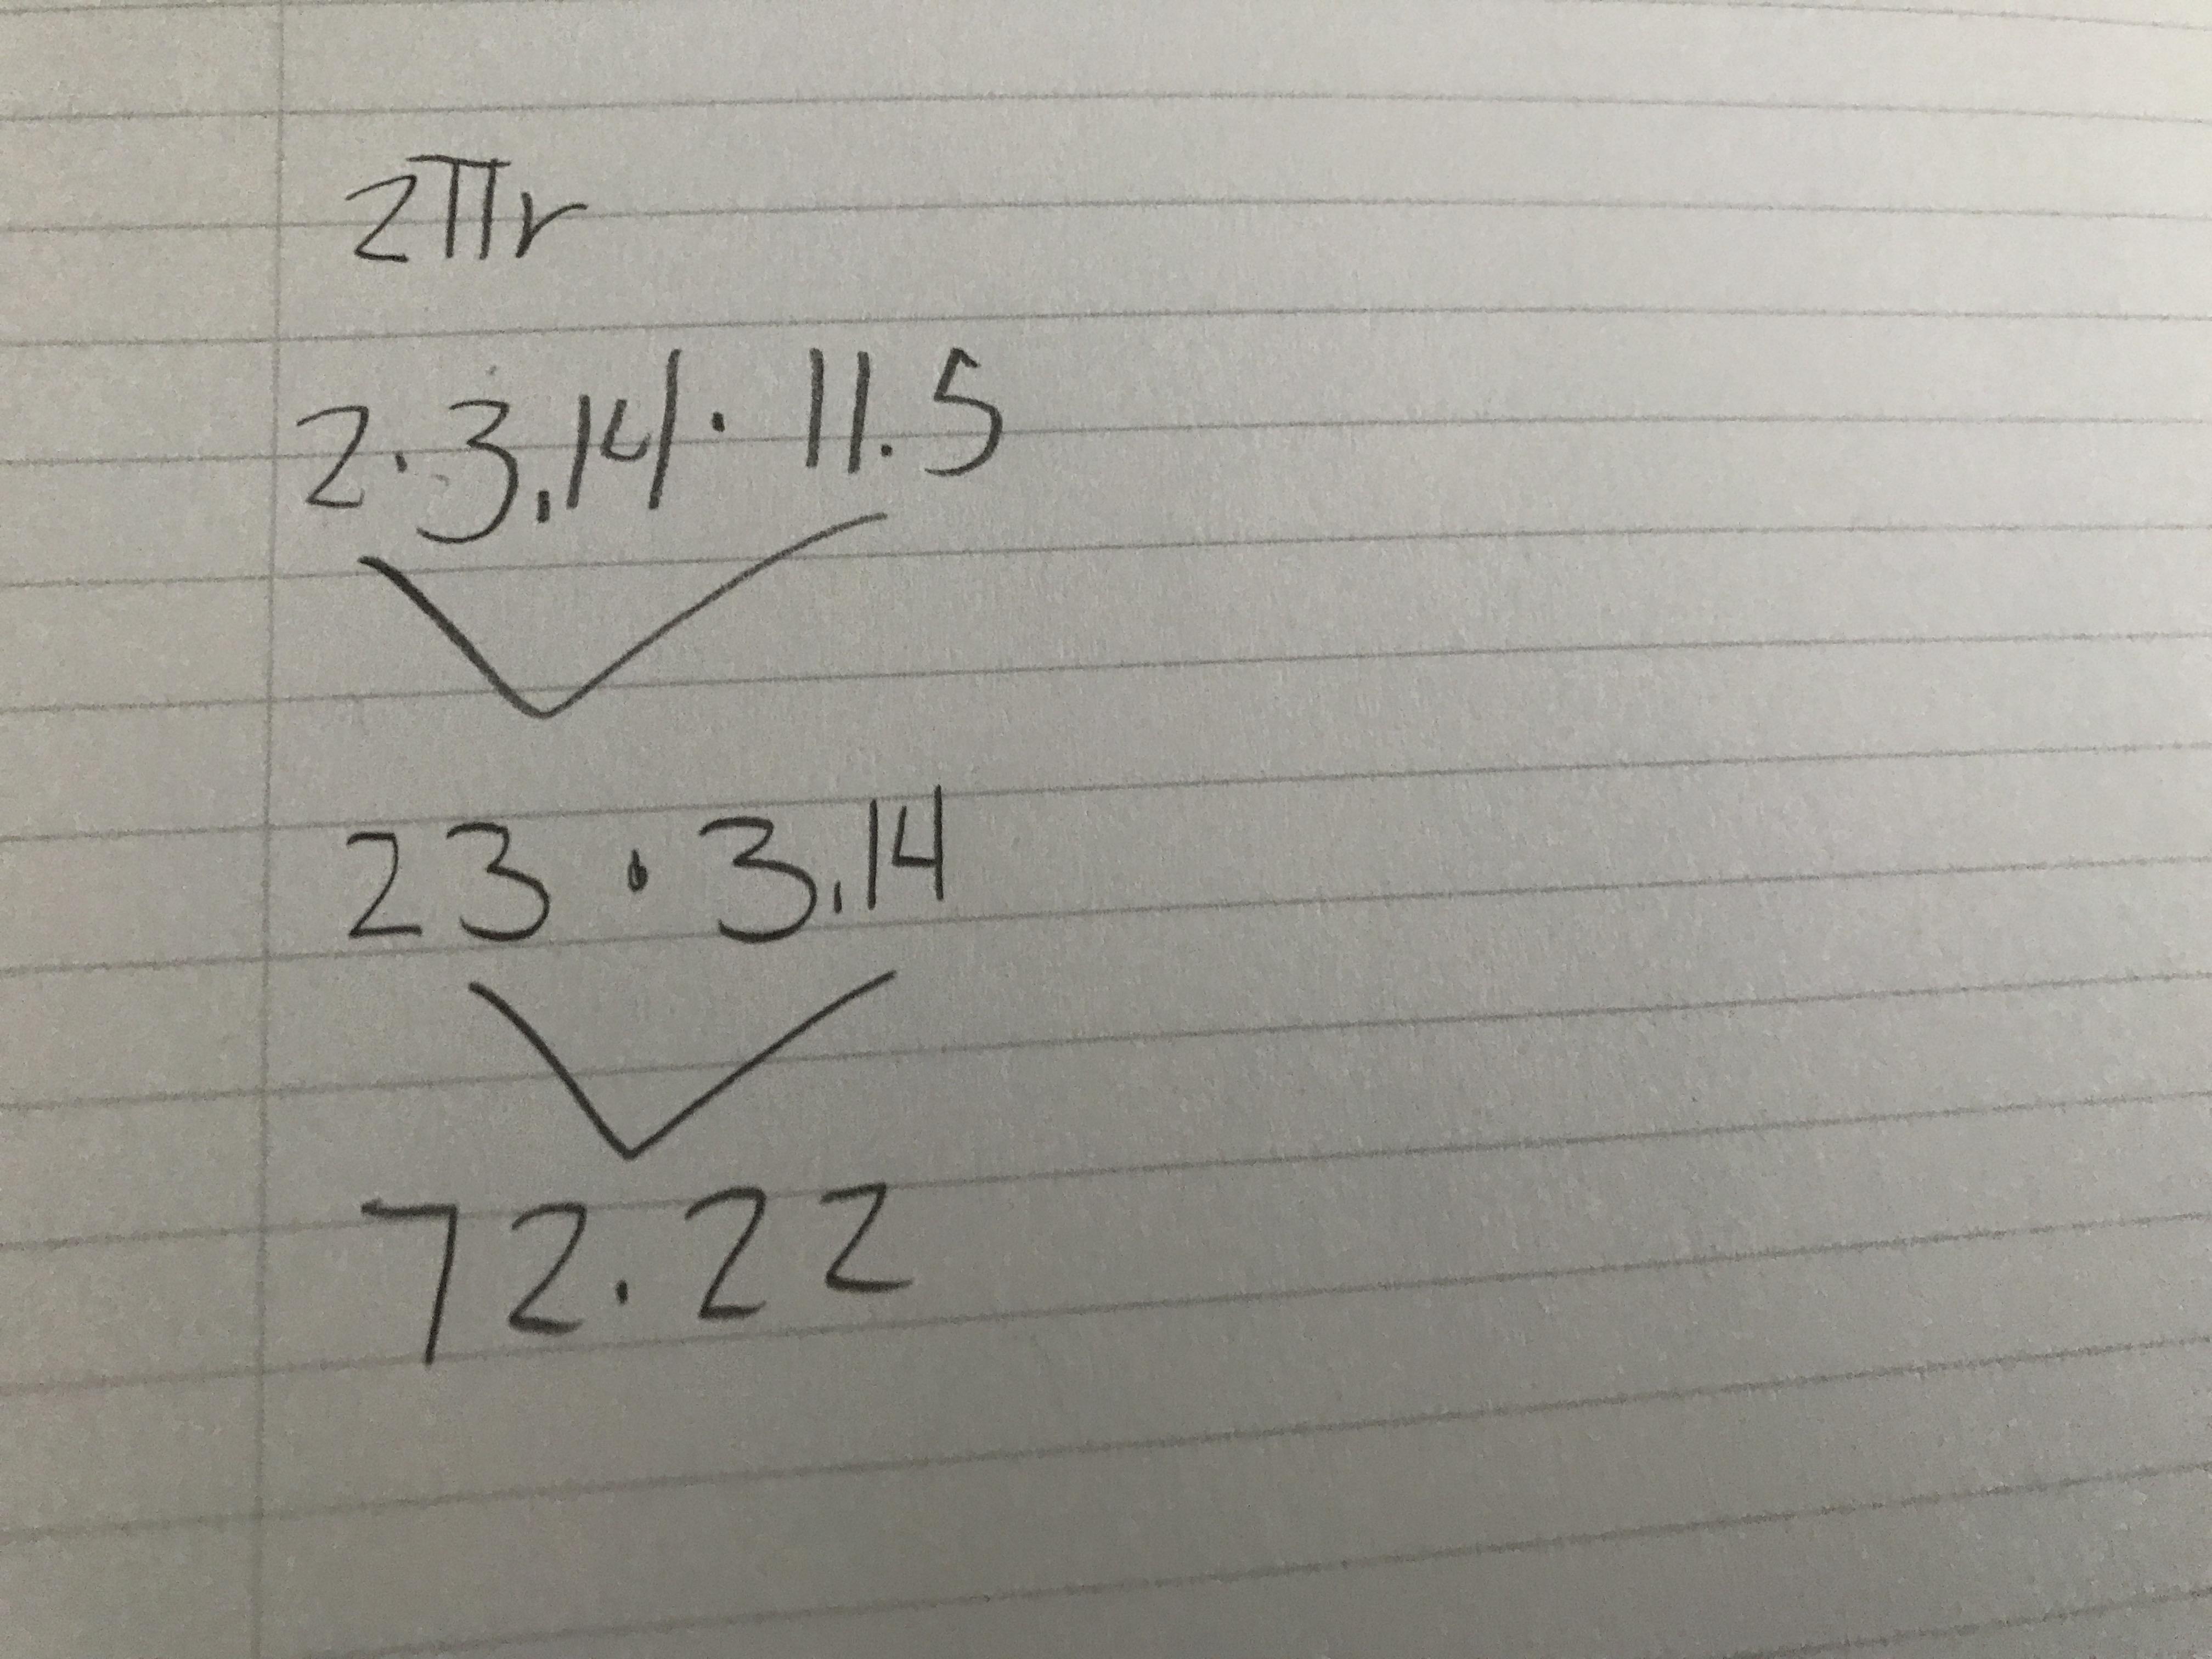 2πr
2·3.14·11.5
23·3.14
72.22